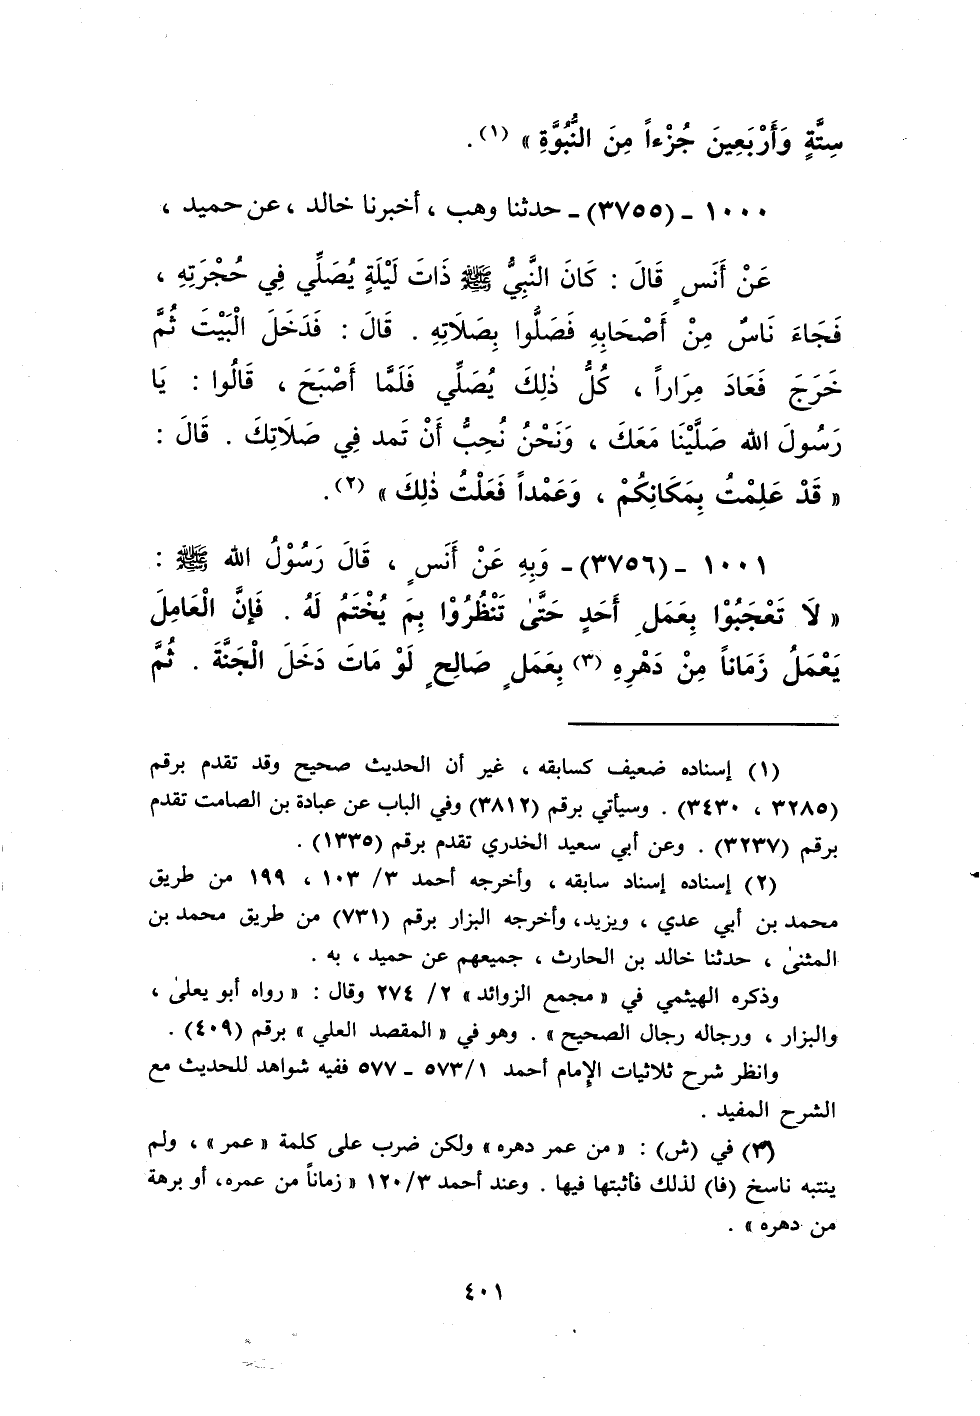 سِتَّةٍ وَأَرْبَعِينَ جُزْءاً مِنَ النُّبُوَّةِ » (١) .
١٠٠٠ ـ (٣٧٥٥) ـ حدثنا وهب ، أخبرنا خالد ، عن حميد ،
عَنْ أَنَسٍ قَالَ : كَانَ النَّبِيُّ ﷺ ذَاتَ لَيْلَةٍ يُصَلِّي فِي حُجْرَتِهِ ،
فَجَاءَ نَاسٌ مِنْ أَصْحَابِهِ فَصَلُّوا بِصَلَاتِهِ . قَالَ : فَدَخَلَ الْبَيْتَ ثُمَّ
خَرَجَ فَعَادَ مِرَاراً ، كُلُّ ذٰلِكَ يُصَلِّي فَلَمَّا أَصْبَحَ ، قَالُوا : يَا
رَسُولَ الله صَلَّيْنَا مَعَكَ ، وَنَحْنُ نُحِبُّ أَنْ تَمد فِي صَلَاتِكَ . قَالَ :
« قَدْ عَلِمْتُ بِمَكَانِكُمْ ، وَعَمْداً فَعَلْتُ ذٰلِكَ » (٢) .
١٠٠١ ـ (٣٧٥٦) ـ وَبِهِ عَنْ أَنَسٍ ، قَالَ رَسُوْلُ الله ﷺ :
« لَا تَعْجَبُوْا بِعَمَلِ أَحَدٍ حَتَّىٰ تَنْظُرُوْا بِمَ يُخْتَمُ لَهُ . فَإِنَّ الْعَامِلَ
يَعْمَلُ زَمَاناً مِنْ دَهْرِهِ (٣) بِعَمَلٍ صَالِحٍ لَوْ مَاتَ دَخَلَ الْجَنَّةَ . ثُمَّ
(١) إسناده ضعيف كسابقه ، غير أن الحديث صحيح وقد تقدم برقم
(٣٢٨٥ ، ٣٤٣٠) . وسيأتي برقم (٣٨١٢) وفي الباب عن عبادة بن الصامت تقدم
برقم (٣٢٣٧) . وعن أبي سعيد الخدري تقدم برقم (١٣٣٥) .
(٢) إسناده إسناد سابقه ، وأخرجه أحمد ٣/ ١٠٣ ، ١٩٩ من طريق
محمد بن أبي عدي ، ويزيد، وأخرجه البزار برقم (٧٣١) من طريق محمد بن
المثنىٰ ، حدثنا خالد بن الحارث ، جميعهم عن حميد ، به .
وذكره الهيثمي في « مجمع الزوائد » ٢/ ٢٧٤ وقال : « رواه أبو يعلىٰ ،
والبزار ، ورجاله رجال الصحيح » . وهو في « المقصد العلي » برقم (٤٠٩) .
وانظر شرح ثلاثيات الإمام أحمد ١/ ٥٧٣ ـ ٥٧٧ ففيه شواهد للحديث مع
الشرح المفيد .
(٣) في (ش) : « من عمر دهره » ولكن ضرب على كلمة « عمر » ، ولم
ينتبه ناسخ (فا) لذلك فأثبتها فيها . وعند أحمد ٣/ ١٢٠ « زماناً من عمره، أو برهة
من دهره » .
٤٠١